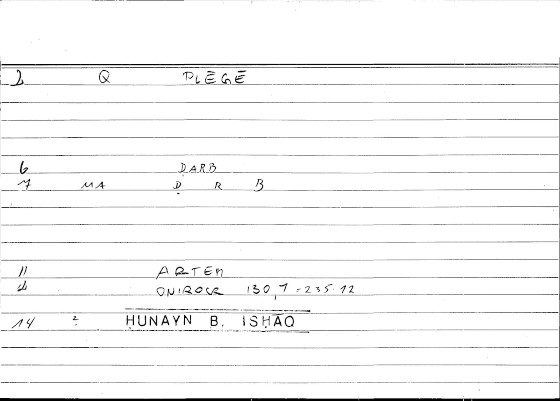 2 Q PLĒGĒ
6 ḌARB
7 MA Ḍ R B
11 ARTEM
12 ONIROCR 130,7 = 235.12
14 2 HUNAYN B. ISHĀQ